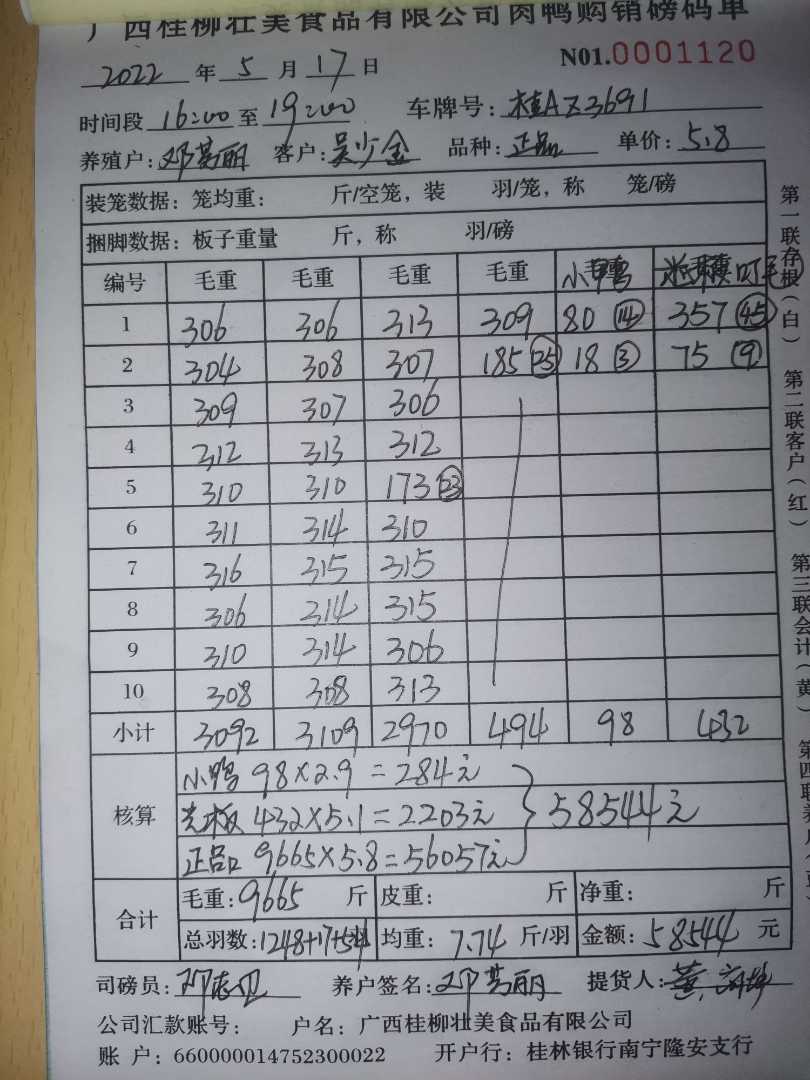 广西桂柳壮美食品有限公司肉鸭购销磅码单
2022 年 5 月 17 日 N01.0001120
时间段 16:00 至 19:00 车牌号: 桂AZ3691
养殖户: 邓葛丽 客户: 吴少金 品种: 正品 单价: 5.8
装笼数据: 笼均重: 斤/空笼, 装 羽/笼, 称 笼/磅
捆脚数据: 板子重量 斤, 称 羽/磅
编号 毛重 毛重 毛重 毛重 小鸭
1 306 306 313 309 80 (14) 357 (45)
2 304 308 307 185 (25) 18 (3) 75 (9)
3 309 307 306
4 312 313 312
5 310 310 173 (23)
6 311 314 310
7 316 315 315
8 306 314 315
9 310 314 306
10 308 308 313
小计 3092 3109 2970 494 98 432
核算
小鸭 98×2.9=284元
光板 432×5.1=2203元 } 58544元
正品 9665×5.8=56057元
合计
毛重: 9665 斤 皮重: 斤 净重: 斤
总羽数: 1248+17+54羽 均重: 7.74 斤/羽 金额: 58544 元
司磅员: 养户签名: 邓葛丽 提货人:
公司汇款账号: 户名: 广西桂柳壮美食品有限公司
账 户: 660000014752300022 开户行: 桂林银行南宁隆安支行
第一联存根(白) 第二联客户(红) 第三联会计(黄) 第四联养户